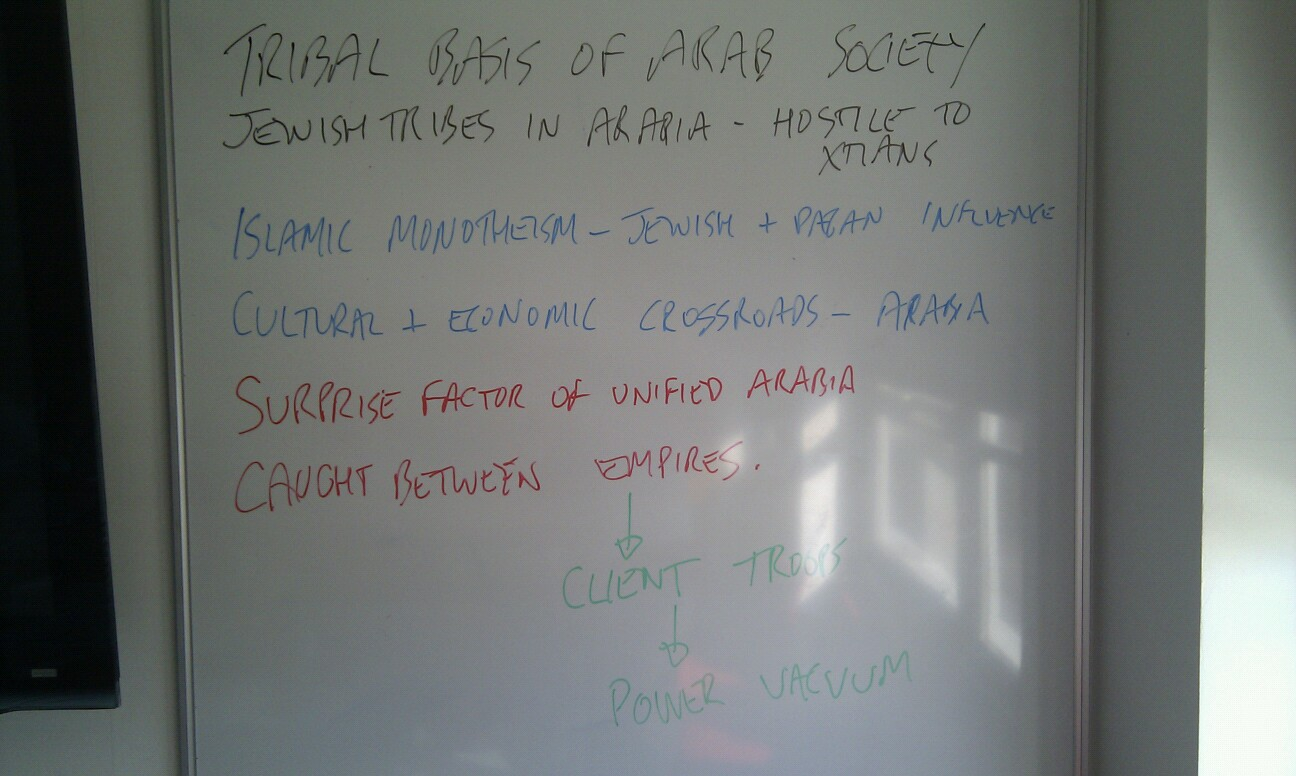 TRIBAL BASIS OF ARAB SOCIETY
JEWISH TRIBES IN ARABIA - HOSTILE TO
XTIANS
ISLAMIC MONOTHEISM - JEWISH + PAGAN INFLUENCE
CULTURAL + ECONOMIC CROSSROADS - ARABIA
SURPRISE FACTOR OF UNIFIED ARABIA
CAUGHT BETWEEN EMPIRES.
CLIENT TROOPS
POWER VACUUM